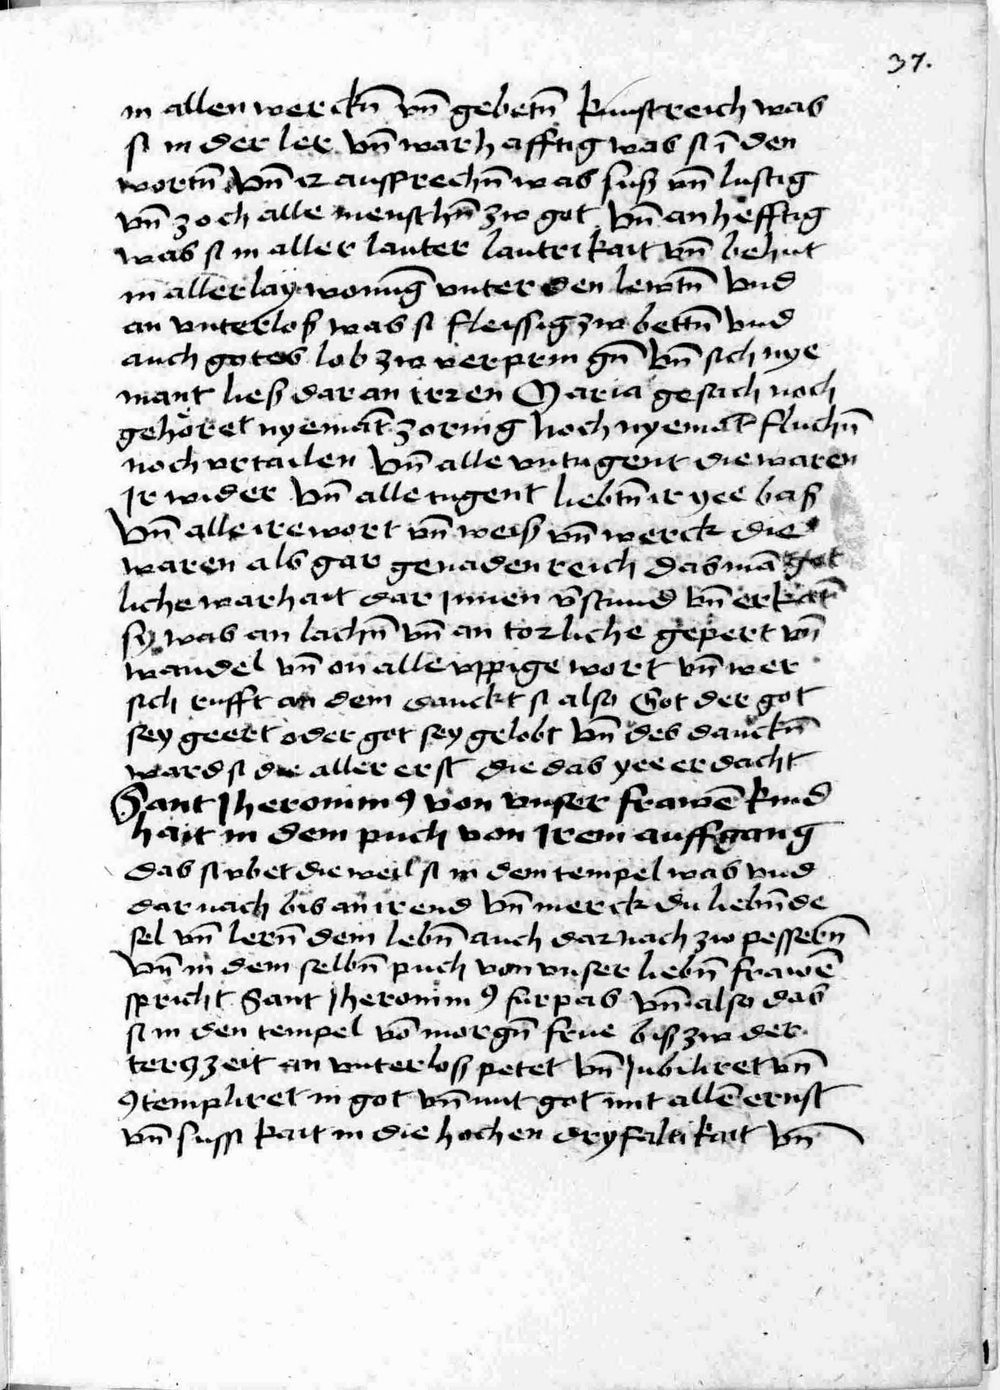 37.
in allen werckn̄ vn̄ gebetn̄ kunstreich was
si in der ler vn̄ warhafftig was si ī den
wortn̄ Vn̄ ir aussprechn̄ was suß vn̄ lustig
vn̄ zoch alle menschn̄ zw got Vn̄ anhefftig
was si in aller lauter lautrikait vn̄ behut
in allerlay wonūg vnter den lewtn̄ Vnd
an vnterloß was si fleissig zw bettn̄ Vnd
auch gotes lob zw verpringn̄ Vn̄ sich nye
mant ließ dar an irren Maria gesach noch
gehöret nyemāt zornig Noch nyemāt fluchn̄
noch vrtailen Vn̄ alle vntugent die waren
Ir wider Vn̄ alle tugent liebtn̄ ir yee baß
Vn̄ alle ire wort vn̄ weiß vn̄ werck die
waren als gar genadenreich das mā got
liche warhait dar Innen v̄stund Vn̄ erkātn̄
sy was an lachn̄ vn̄ an torliche gepert vn̄
wandel vn̄ on alle vppige wort vn̄ wer
sich rufft an dem danckt si also Got der got
sey geert oder got sey gelobt Vn̄ des danckn̄
ward si die aller erst die das yee erdacht
Sant Jheronimꝯ von vnser frawē kind
hait in dem puch von Irem auffgang
das si vbet die weil si in dem tempel was vnd
dar nach bis an ir end Vn̄ merck du liebn̄de
sel vn̄ lern̄ dem lebn̄ auch dar nach zw pessern̄
Vn̄ in dem selbn̄ puch von vnser liebn̄ frawē
spricht Sant Jheronimꝯ furpas Vn̄ also das
si in den tempel vō morgn̄ frue biß zw der
terꝯzeit an vnterloß petet Vn̄ Jubiliret vn̄
ꝯtempliret in got vn̄ mit got mit allē ernst
vn̄ sussikait in die hochen dryfaltikait Vn̄